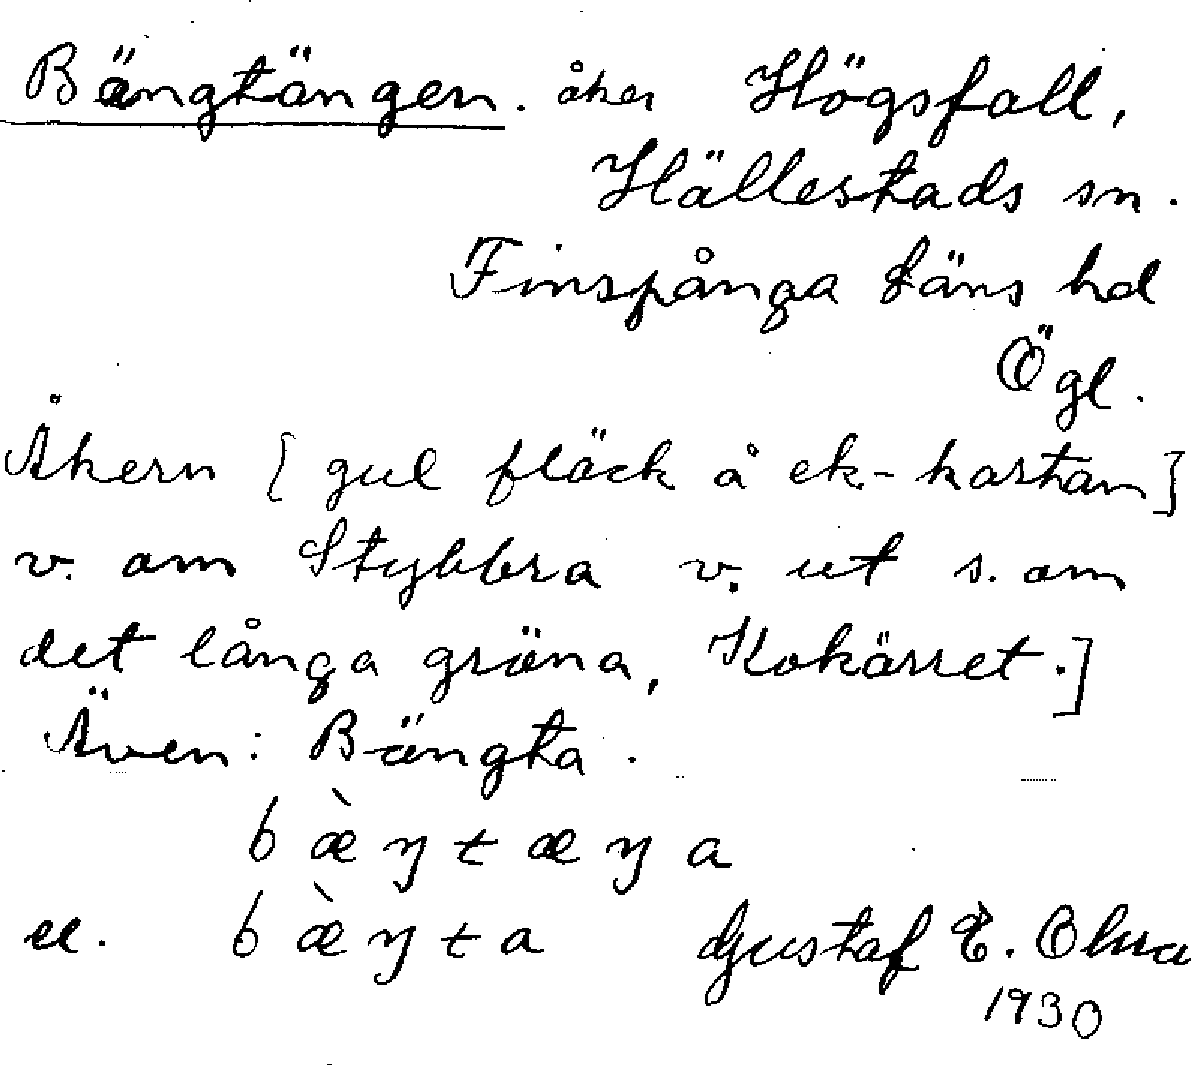 Bängtängen. åker Högsfall,
Hällestads sn.
Finspånga läns hd
Ögl.
Åkern [gul fläck å ek-kartan]
v. om Stybbra v. ut s. om
det långa gröna, Kokärret.]
Även: Bängta.
bæ̀ŋtæŋa
el. bæ̀ŋta Gustaf E.
1930